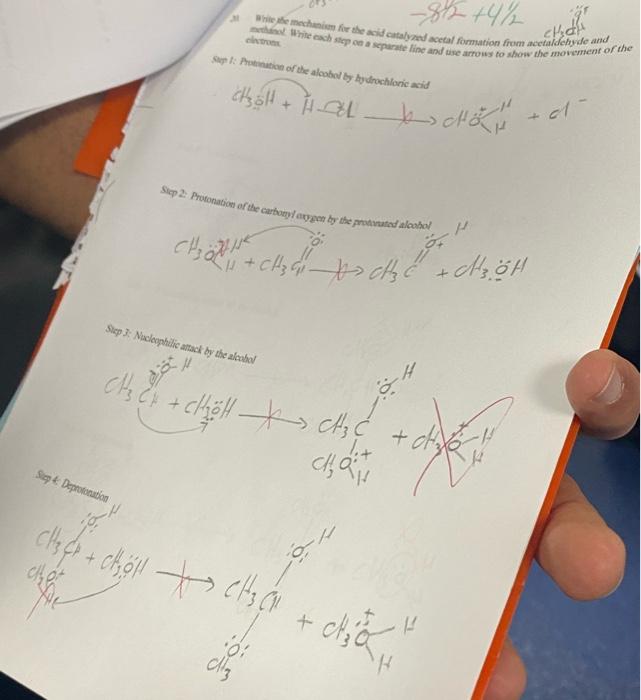 -8 1/2 +4 1/2
20. Write the mechanism for the acid catalyzed acetal formation from acetaldehyde and
methanol. Write each step on a separate line and use arrows to show the movement of the
electrons.
Step 1: Protonation of the alcohol by hydrochloric acid
CH3ÖH + H-Cl → CHO H H + Cl-
Step 2: Protonation of the carbonyl oxygen by the protonated alcohol
O O+ H
CH3O H H + CH3CH → CH3C + CH3ÖH
Step 3: Nucleophilic attack by the alcohol
O+ H O H
CH3CH + CH3ÖH → CH3C + CH3O+ H H
CH3O+ H
Step 4: Deprotonation
O H O H
CH3CH + CH3ÖH → CH3CH + CH3O+ H H
CH3O+ H O
CH3